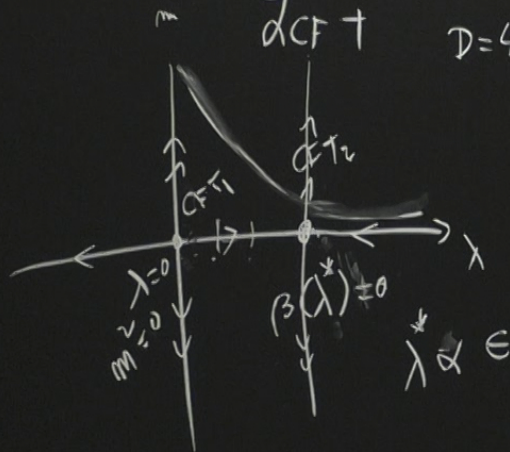 m
αCFT
D=4
CFT₁
CFT₂
λ
λ=0
m²=0
β(λ*)=0
λ* α ϵ